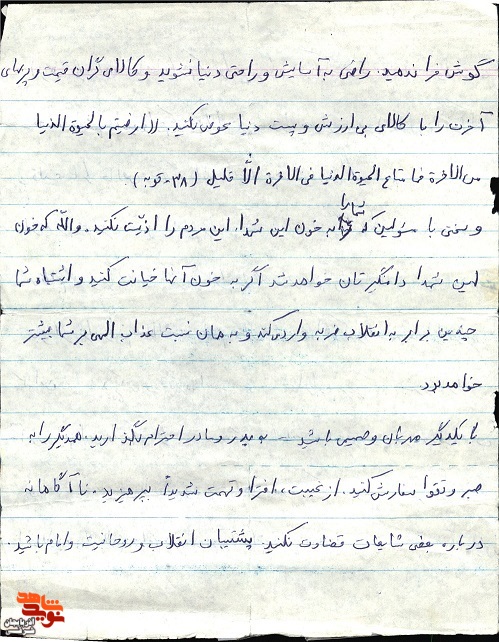 گوش فرا ندهید. راضی به آسایش و راحتی دنیا نشوید و کالای گران قیمت و پربهای
آخرت را با کالای بی ارزش و پست دنیا عوض نکنید. ((ارضیتم بالحیوة الدنیا
من الاخرة فما متاع الحیوة الدنیا فی الاخرة الّا قلیل (۳۸-توبه)
و سخنی با مسئولین که شما را به خون این شهدا، این مردم را اذیّت نکنید. والله که خون
این شهدا دامنگیرتان خواهد شد اگر به خون آنها خیانت کنید و اشتباه شما
چندین برابر به انقلاب ضربه وارد می کند و به همان نسبت عذاب الهی بر شما بیشتر
خواهد بود.
با یکدیگر مهربان و صمیمی باشید - به پدر و مادر احترام بگذارید. همدیگر را به
صبر و تقوا سفارش کنید. از غیبت، افترا و تهمت شدیداً بپرهیزید. ناآگاهانه
درباره بعضی شایعات قضاوت نکنید. پشتیبان انقلاب و روحانیت و امام باشید.
نوید شاهد
آذربایجان شرقی